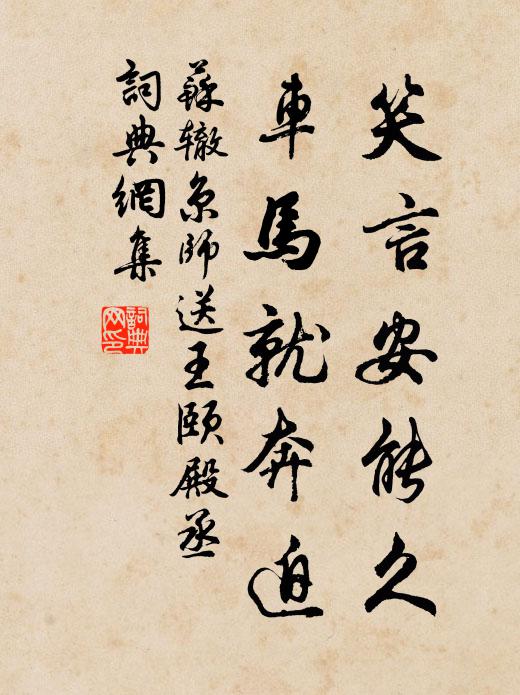 笑言安能久
車馬就奔迫
蘇辙京師送王頤殿丞
詞典網集
詞典
网印